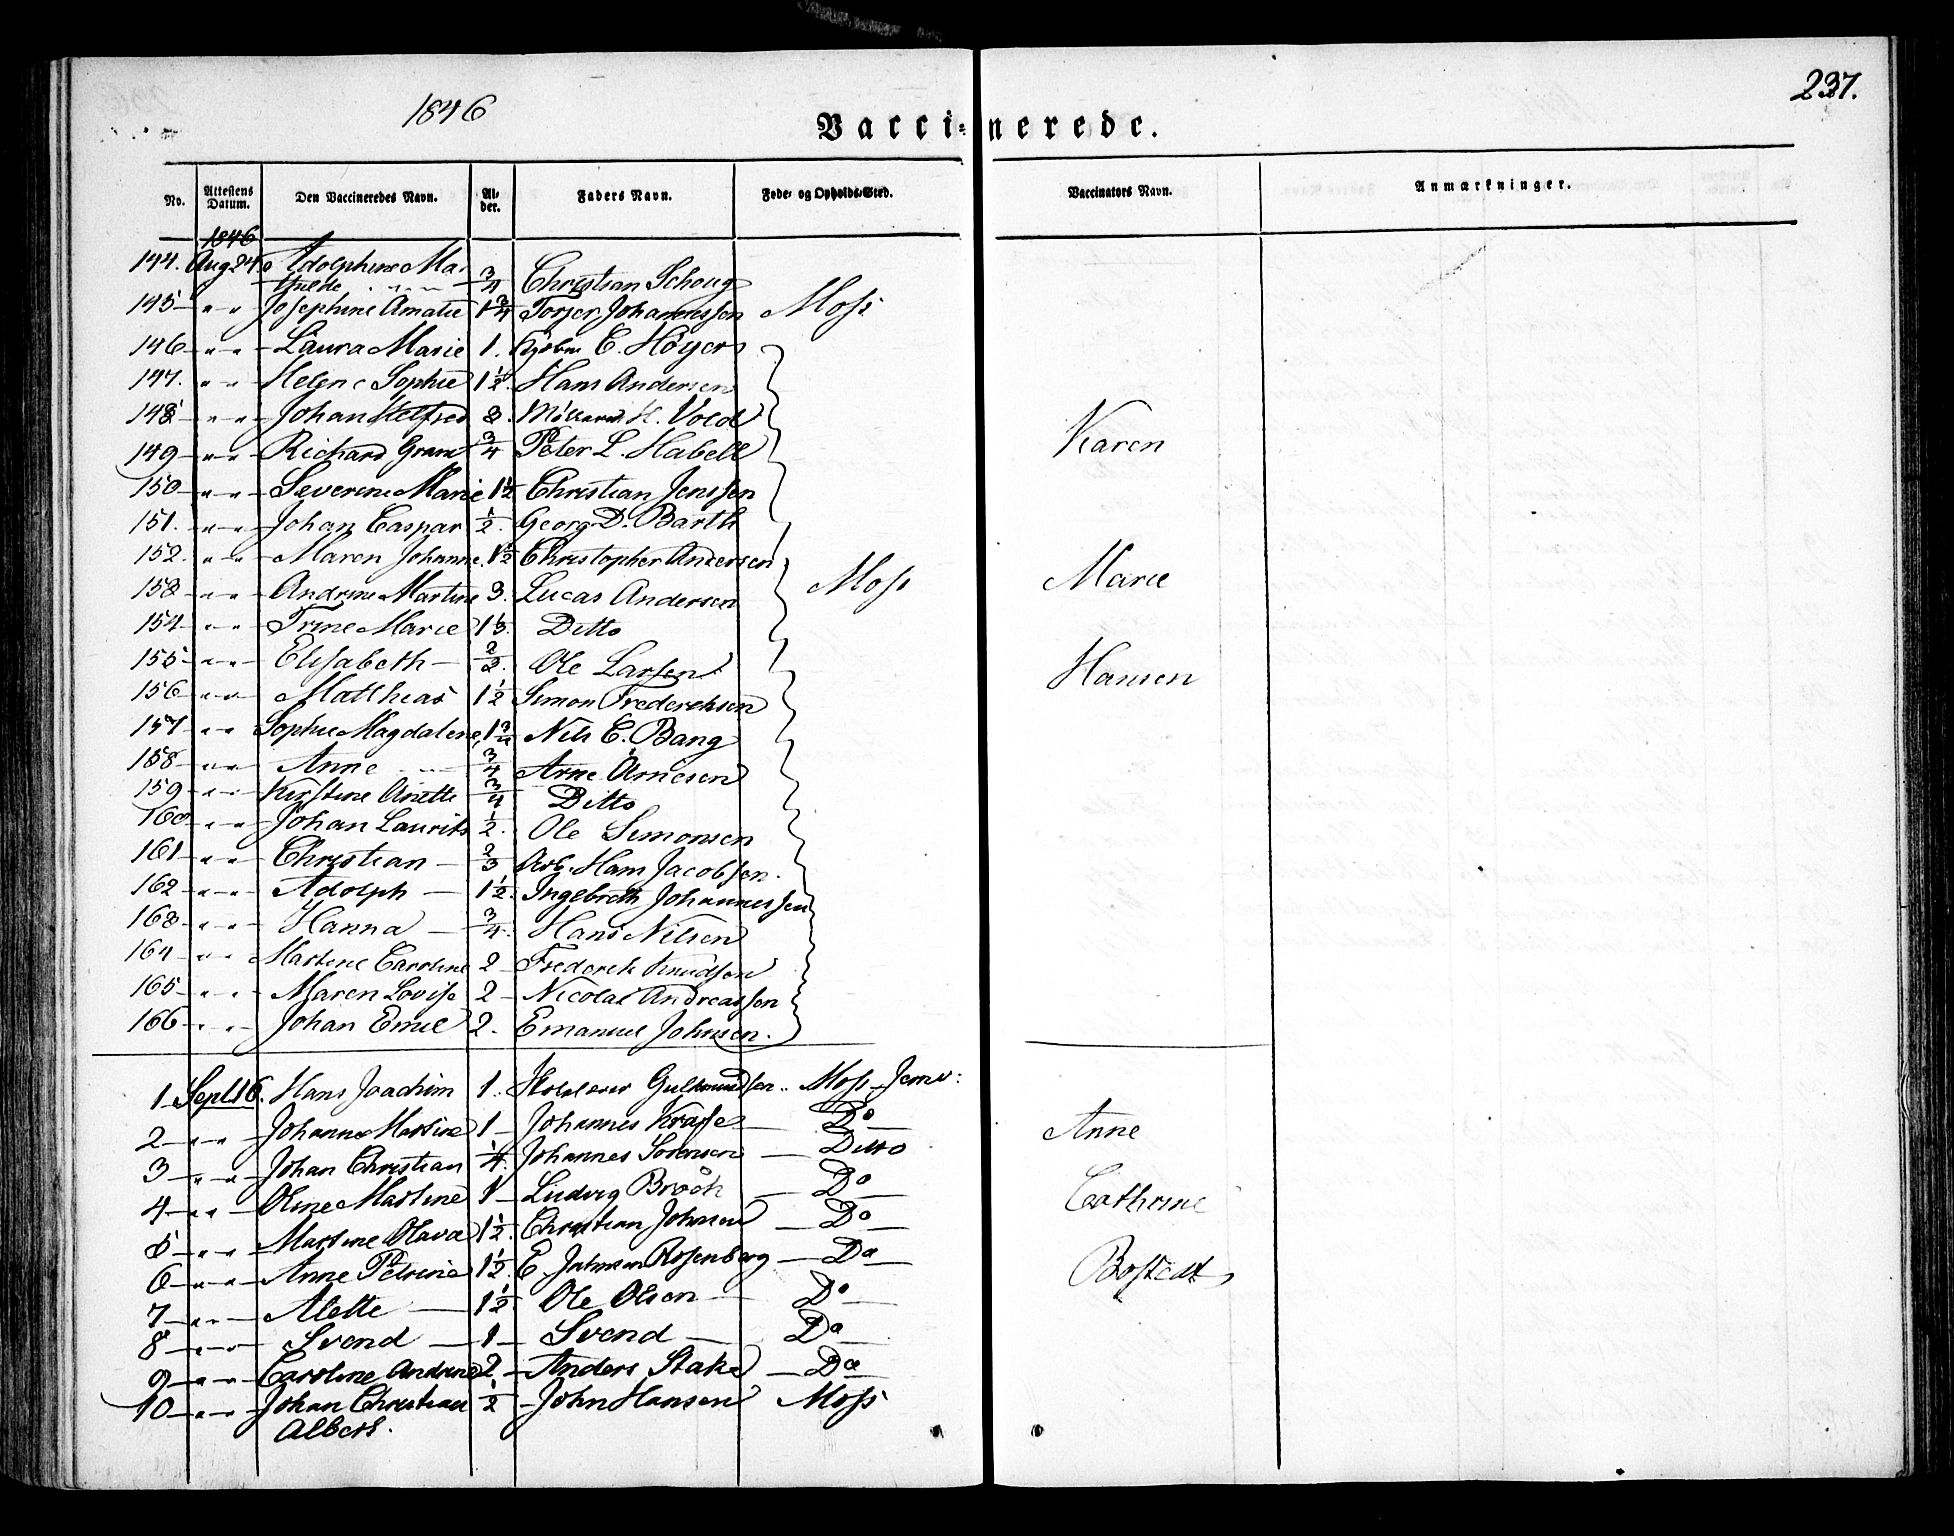 237.
1846
Vaccinerede.
No. Attestens Datum. Den Vaccineredes Navn. Alder. Faders Navn. Føde- og Opholds-Sted. Vaccinators Navn. Anmærkninger.
1846
144. Aug 24. Adolphine Ma-
thilde 3/4 Christian Schoug
145 " " Josephine Amalie 1 3/4 Torger Johannessen Moss
146 " " Laura Marie 1. Kjøbm C. Høyer
147. " " Helene Sophie 1 1/2. Hans Andersen
148 " " Johan Helfred 8. H. Vold
149 " " Richard Gram 3/4 Peter L. Habell Karen
150 " " Severine Marie 1 1/2 Christian Jenssen
151. " " Johan Caspar 1/2. Georg D. Barth
152. " " Maren Johanne 1 1/2 Christopher Andersen
153 " " Andrine Martine 3. Lucas Andersen Moss Marie
154 " " Trine Marie 1 1/3. Ditto
155 " " Elisabeth Ole Larsen Hansen
156 " " Matthias 1 1/2 Simon Frederiksen
157 " " Sophie Magdalene, 1 3/4 Nils C. Bang
158 " " Anne 3/4 Arne Arnesen
159 " " Kirstine Anette 3/4 Ditto
160 " " Johan Laurits 1/2. Ole Simonsen
161 " " Christian 2/3 Arb. Hans Jacobsen.
162 " " Adolph 1 1/2. Ingebreth Johannessen
163 " " Hanna 3/4. Hans Nilsen
164 " " Martine Caroline 2 Frederik Knudsen
165 " " Maren Lovise 2 Nicolai Andreassen
166 " " Johan Emil 2. Emanuel Johnsen.
1 Sept 16. Hans Joachim 1. Gulbrandsen Moss Jernv:
2 " " Johanne Martine 1 Johannes Krafse Do Anne
3 " " Johan Christian 1/4. Johannes Sørensen Ditto
4 " " Oline Martine 1 Ludvig Broch Do Cathrine
5 " " Martine Olava 1 1/2. Christian Johnsen Do
6 " " Anne Petrine 1 1/2. E. Johnsen Rosenberg Do Bostedt
7 " " Alette 1 1/2. Ole Olsen Do
8 " " Svend 1 Svend Do
9 " " Caroline Andrine 2 Anders Stake Do
10 " " Johan Christian 1/2 John Hansen Moss
Albert.